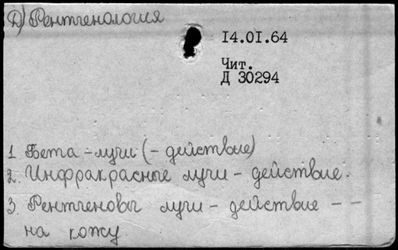 Д) Рентгенология
14.01.64
Чит.
Д 30294
1 Бета-лучи (- действие)
2. Инфракрасные лучи - действие.
3. Рентгеновы лучи - действие - -
на кожу